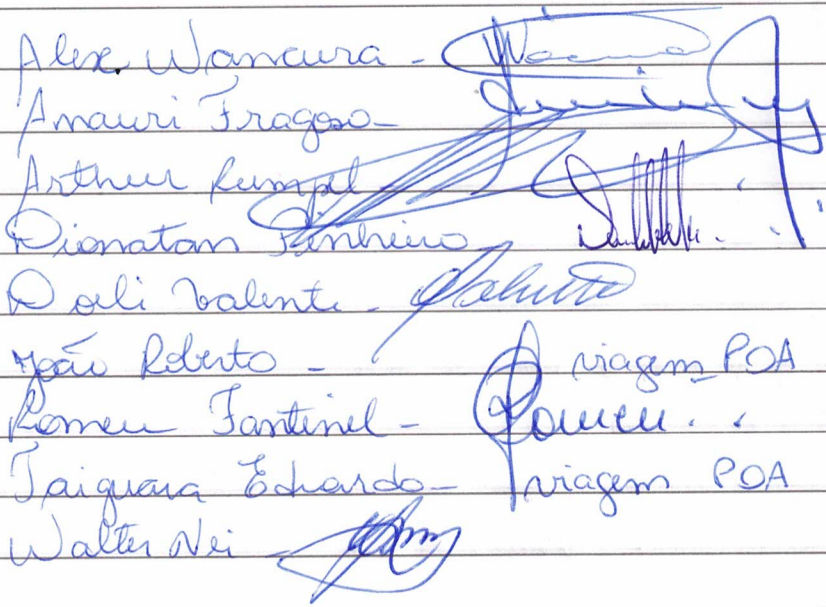 Alex Wancura -
Amauri Fragoso -
Arthur Rumpel
Dionatan Pinheiro
Doli Valente -
João Roberto - viagem POA
Romeu Fantinel - Romeu
Taiguara Eduardo - viagem POA
Walter Nei